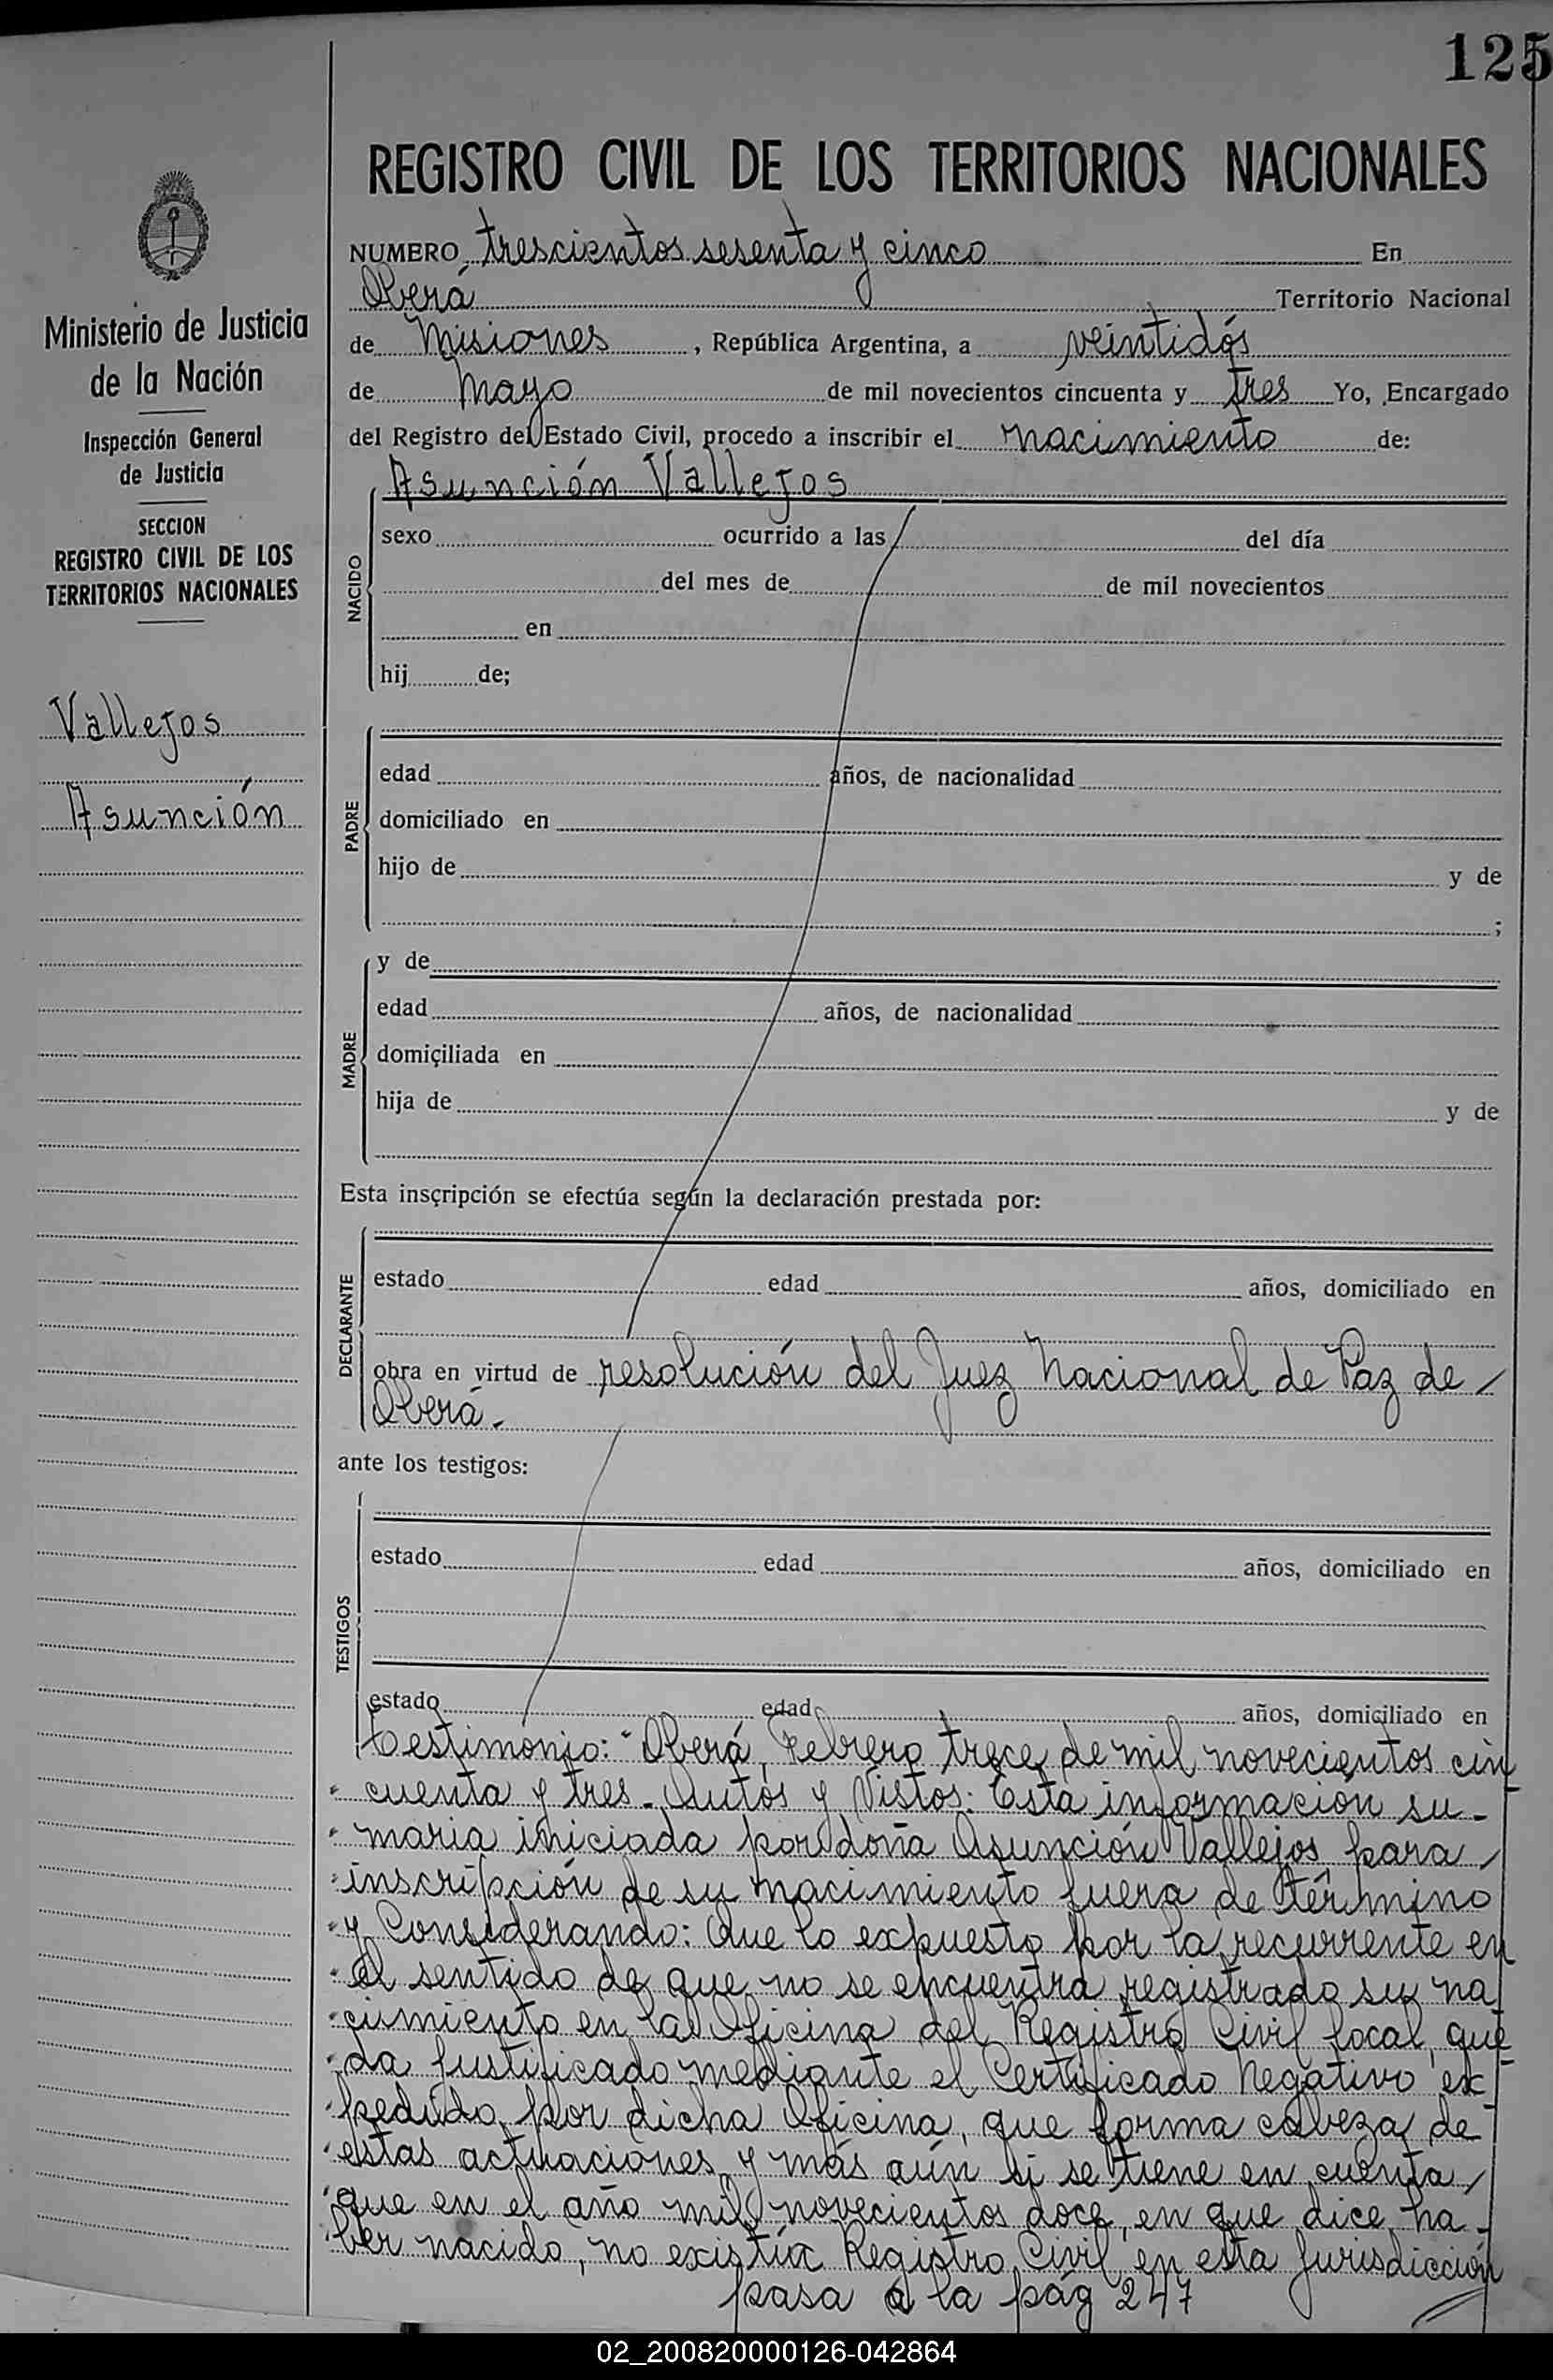 125
REGISTRO CIVIL DE LOS TERRITORIOS NACIONALES
Ministerio de Justicia
de la Nación
Inspección General
de Justicia
SECCION
REGISTRO CIVIL DE LOS
TERRITORIOS NACIONALES
Vallejos
Asunción
NUMERO trescientos sesenta y cinco En
Oberá Territorio Nacional
de Misiones, República Argentina, a veintidós
de Mayo de mil novecientos cincuenta y tres Yo, Encargado
del Registro del Estado Civil, procedo a inscribir el nacimiento de:
Asunción Vallejos
NACIDO
sexo ocurrido a las del día
del mes de de mil novecientos
en
hij de;
PADRE
edad años, de nacionalidad
domiciliado en
hijo de y de
;
MADRE
y de
edad años, de nacionalidad
domiciliada en
hija de y de
Esta inscripción se efectúa según la declaración prestada por:
DECLARANTE
estado edad años, domiciliado en
obra en virtud de resolución del Juez Nacional de Paz de
Oberá.
ante los testigos:
TESTIGOS
estado edad años, domiciliado en
estado edad años, domiciliado en
testimonio: "Oberá, Febrero trece de mil novecientos cin
" cuenta y tres. Autos y Vistos: Esta información su-
" maria iniciada por doña Asunción Vallejos para
" inscripción de su nacimiento fuera de término
" y Considerando: Que lo expuesto por la recurrente en
" el sentido de que no se encuentra registrado su na
" cimiento en la Oficina del Registro Civil local, que
" da justificado mediante el Certificado Negativo ex
" pedido por dicha Oficina, que forma cabeza de
" estas actuaciones y más aún si se tiene en cuenta
" que en el año mil novecientos doce, en que dice ha-
" ber nacido, no existía Registro Civil en esta Jurisdicción
pasa a la pág 247
02_200820000126-042864